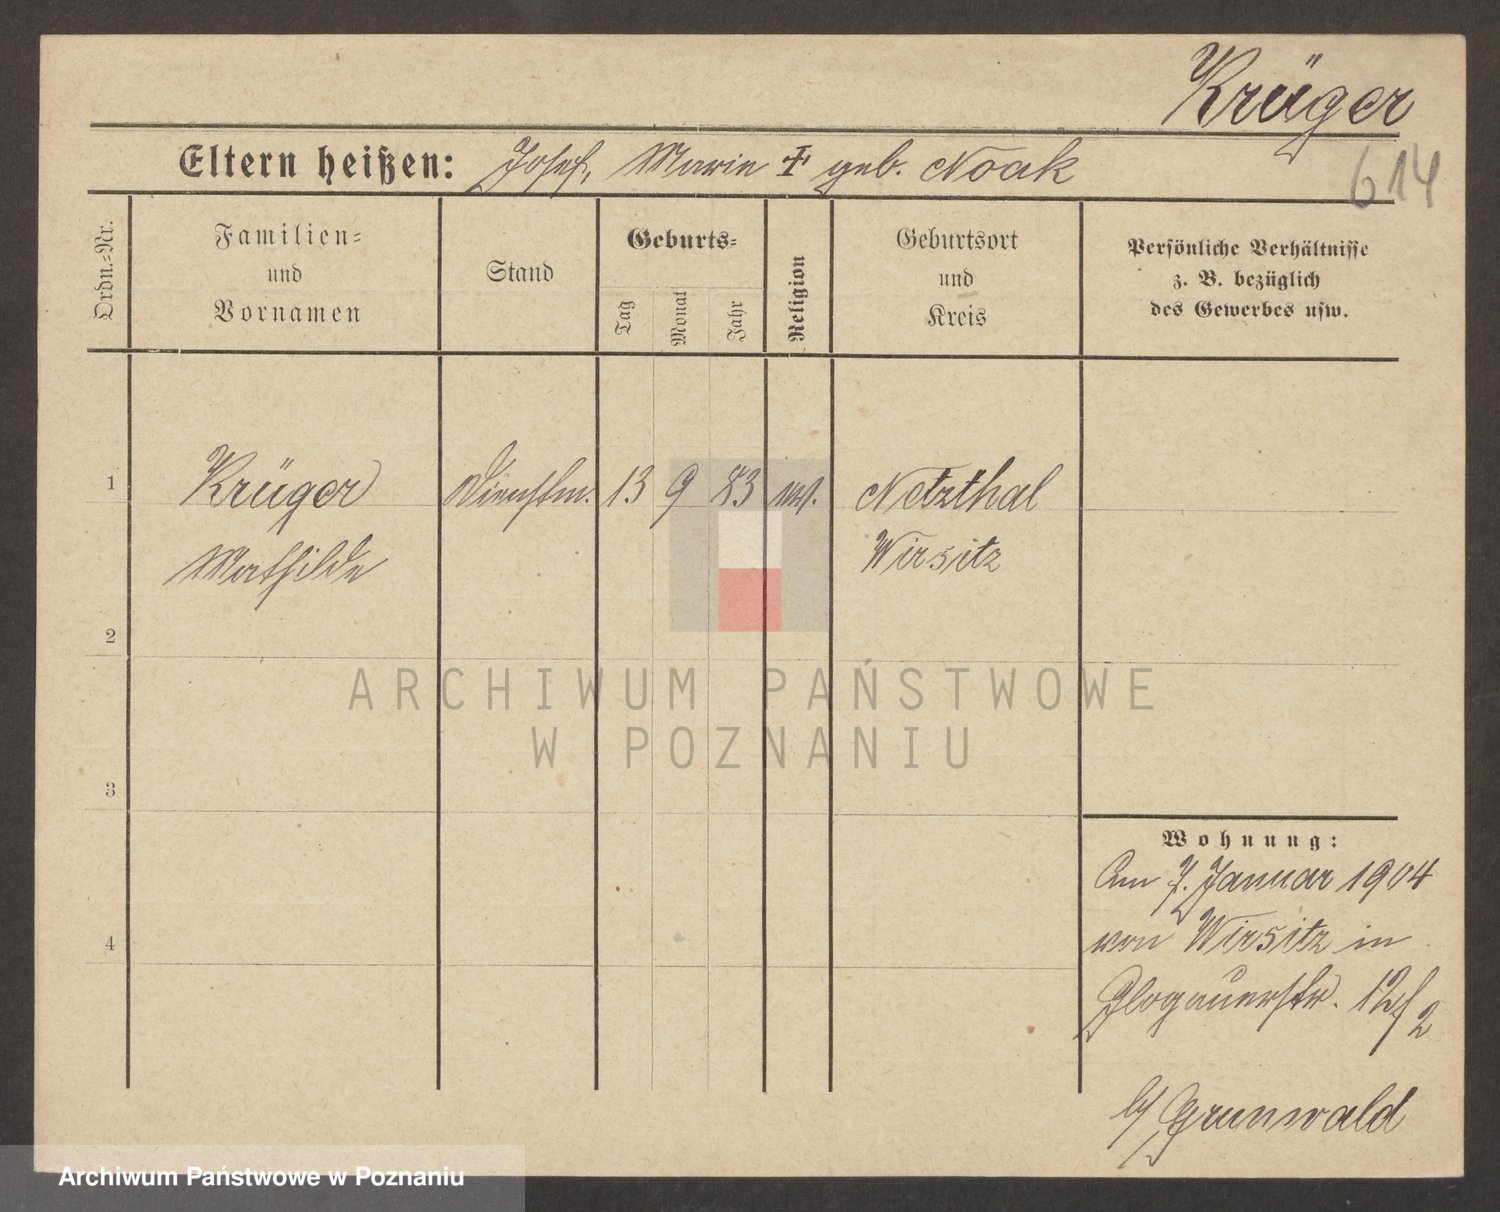 Krüger
Eltern heißen: Josef, Marie † geb. Noak
614
Ordn.=Nr.
Familien=
und
Vornamen
Stand
Geburts=
Tag
Monat
Jahr
Religion
Geburtsort
und
Kreis
Persönliche Verhältnisse
z. B. bezüglich
des Gewerbes usw.
1
Krüger
Mathilde
Dienstm.
13
9
83
Netzthal
Wirsitz
2
3
4
ARCHIWUM PAŃSTWOWE
W POZNANIU
Wohnung:
Am 7. Januar 1904
von Wirsitz in
Glogauerstr. 12/2
b/ Grunwald
Archiwum Państwowe w Poznaniu